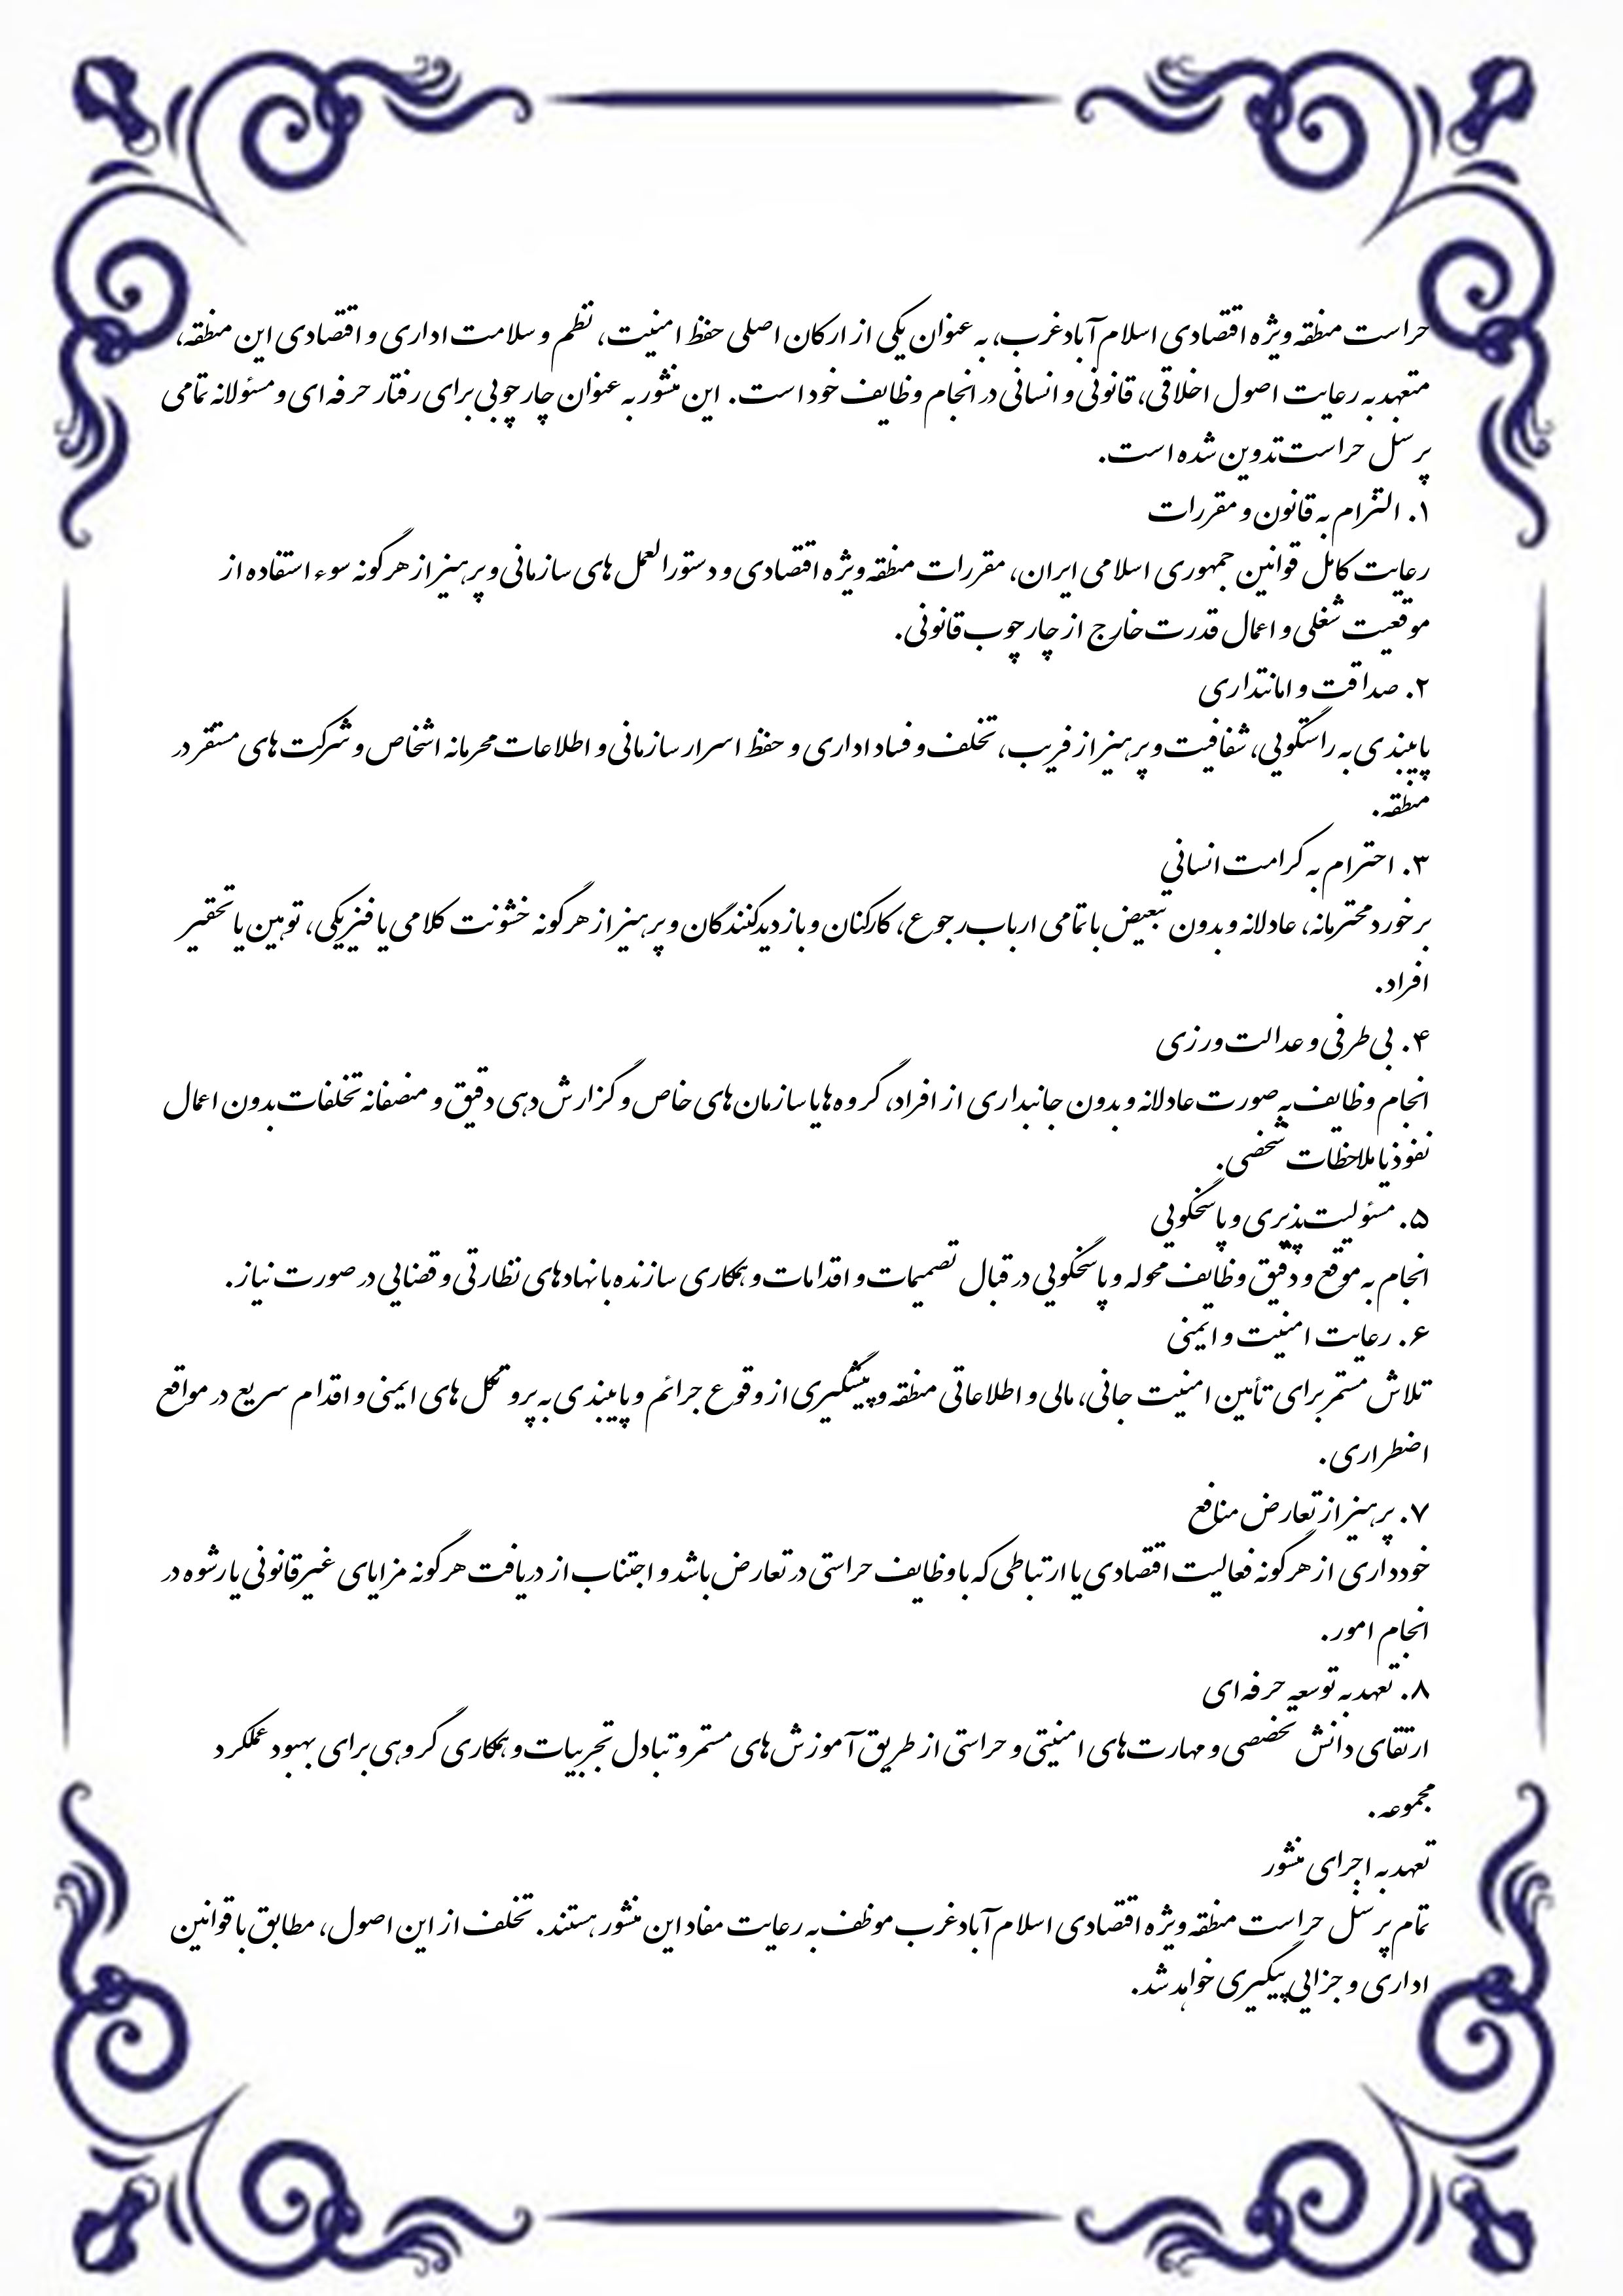 حراست منطقه ویژه اقتصادی اسلام آباد غرب، به عنوان یکی از ارکان اصلی حفظ امنیت، نظم و سلامت اداری و اقتصادی این منطقه،
متعهد به رعایت اصول اخلاقی، قانونی و انسانی در انجام وظایف خود است. این منشور به عنوان چارچوبی برای رفتار حرفه ای و مسئولانه تمامی
پرسنل حراست تدوین شده است.
۱. التزام به قانون و مقررات
رعایت کامل قوانین جمهوری اسلامی ایران، مقررات منطقه ویژه اقتصادی و دستورالعمل های سازمانی و پرهیز از هرگونه سوء استفاده از
موقعیت شغلی و اعمال قدرت خارج از چارچوب قانونی.
۲. صداقت و امانتداری
پایبندی به راستگویی، شفافیت و پرهیز از فریب، تخلف و فساد اداری و حفظ اسرار سازمانی و اطلاعات محرمانه اشخاص و شرکت های مستقر در
منطقه.
۳. احترام به کرامت انسانی
برخورد محترمانه، عادلانه و بدون تبعیض با تمامی ارباب رجوع، کارکنان و بازدیدکنندگان و پرهیز از هرگونه خشونت کلامی یا فیزیکی، توهین یا تحقیر
افراد.
۴. بی طرفی و عدالت ورزی
انجام وظایف به صورت عادلانه و بدون جانبداری از افراد، گروه ها یا سازمان های خاص و گزارش دهی دقیق و منصفانه تخلفات بدون اعمال
نفوذ یا ملاحظات شخصی.
۵. مسئولیت پذیری و پاسخگویی
انجام به موقع و دقیق وظایف محوله و پاسخگویی در قبال تصمیمات و اقدامات و همکاری سازنده با نهادهای نظارتی و قضایی در صورت نیاز.
۶. رعایت امنیت و ایمنی
تلاش مستمر برای تأمین امنیت جانی، مالی و اطلاعاتی منطقه و پیشگیری از وقوع جرائم و پایبندی به پروتکل های ایمنی و اقدام سریع در مواقع
اضطراری.
۷. پرهیز از تعارض منافع
خودداری از هرگونه فعالیت اقتصادی یا ارتباطی که با وظایف حراستی در تعارض باشد و اجتناب از دریافت هرگونه مزایای غیرقانونی یا رشوه در
انجام امور.
۸. تعهد به توسعه حرفه ای
ارتقای دانش تخصصی و مهارت های امنیتی و حراستی از طریق آموزش های مستمر و تبادل تجربیات و همکاری گروهی برای بهبود عملکرد
مجموعه.
تعهد به اجرای منشور
تمام پرسنل حراست منطقه ویژه اقتصادی اسلام آباد غرب موظف به رعایت مفاد این منشور هستند. تخلف از این اصول، مطابق با قوانین
اداری و جزایی پیگیری خواهد شد.